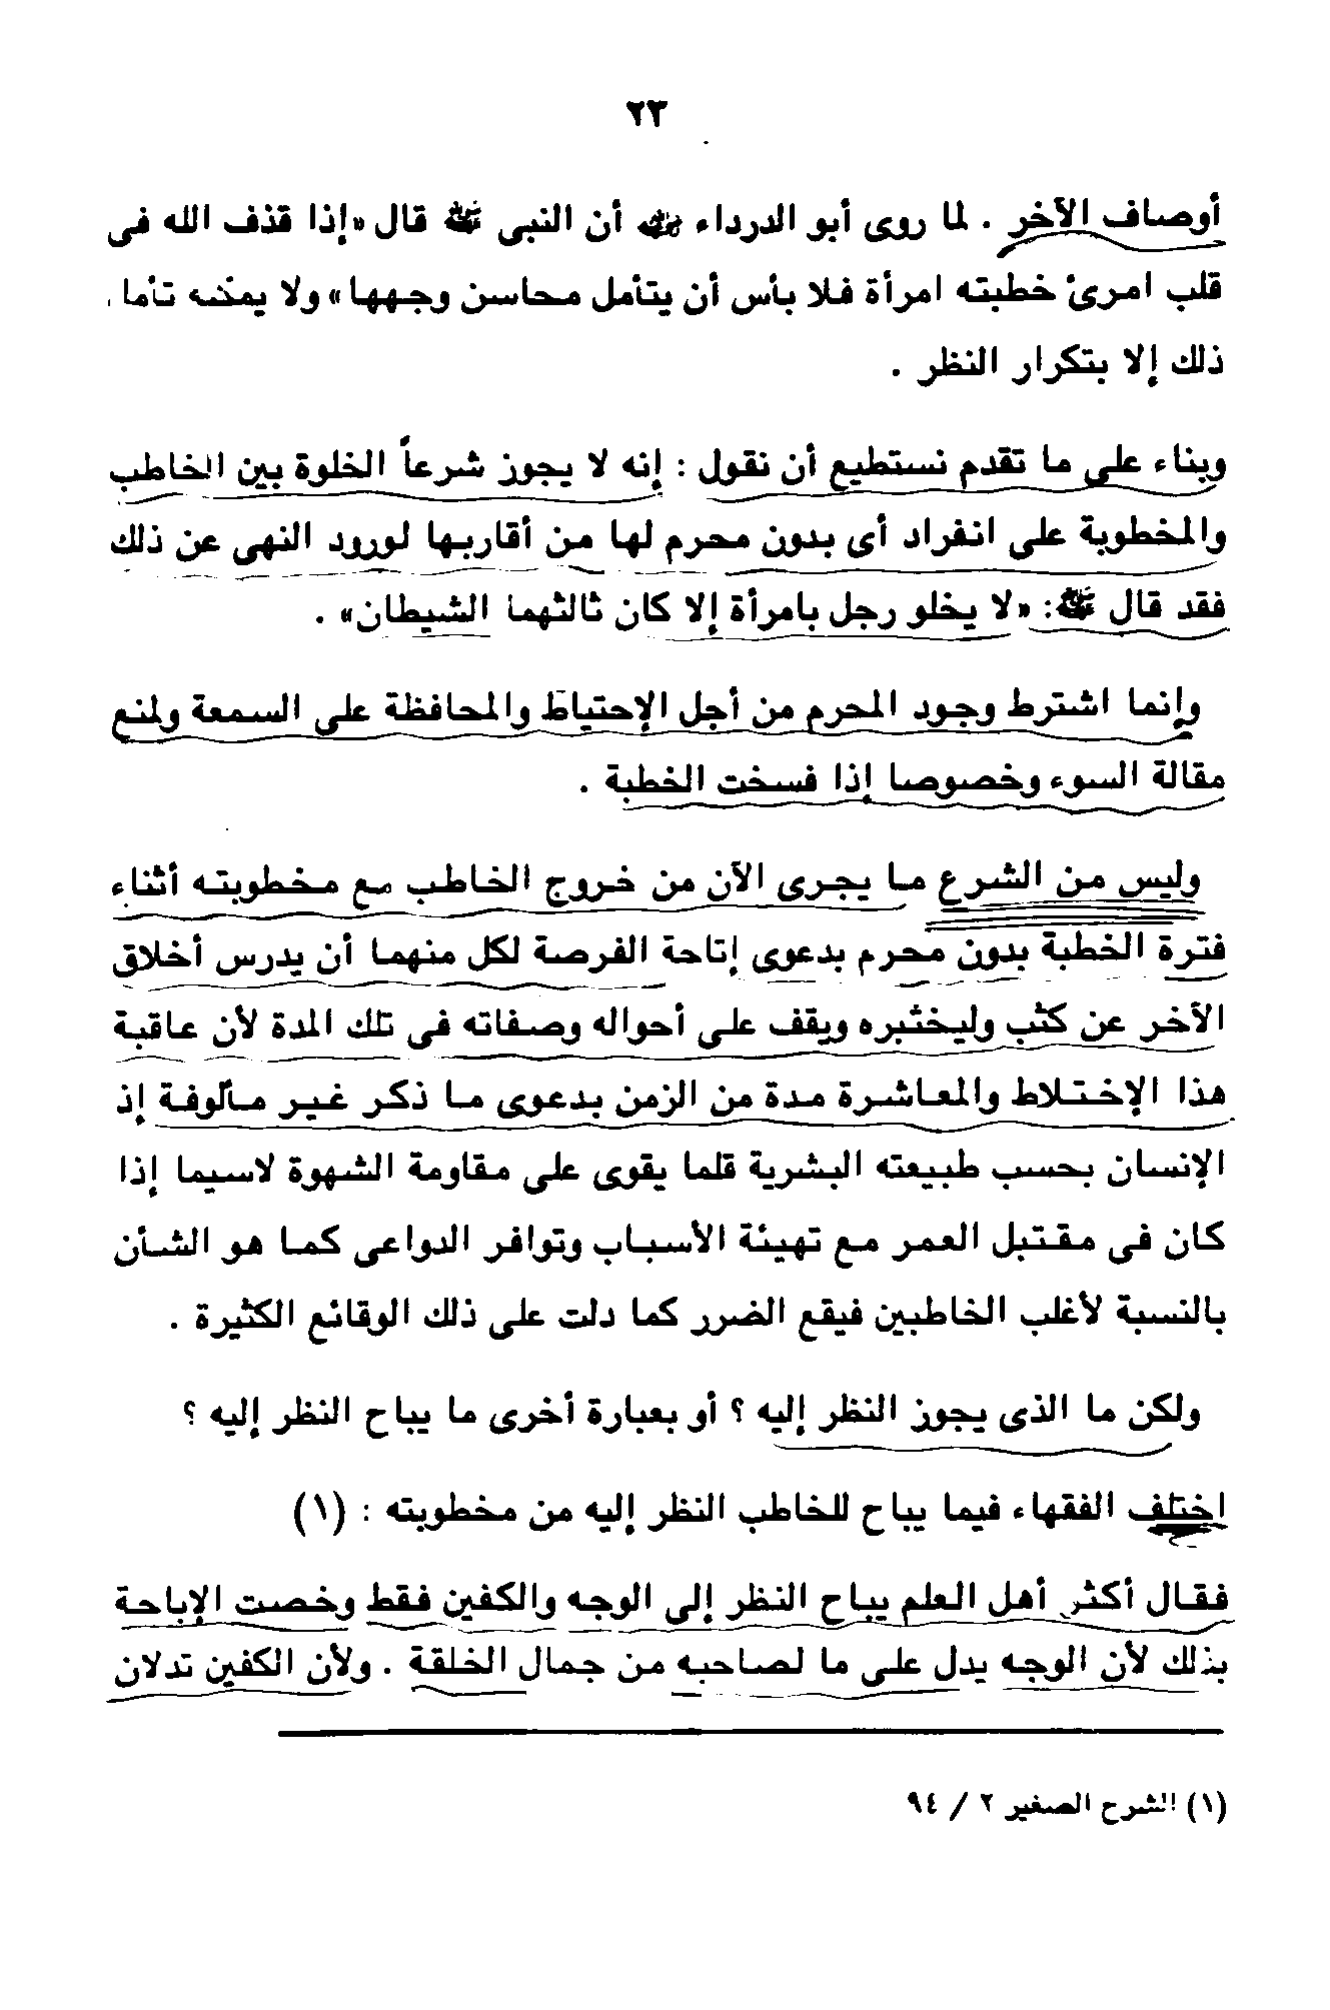 ٢٣
أوصاف الآخر . لما روى أبو الدرداء رضي الله عنه أن النبى ﷺ قال «إذا قذف الله فى
قلب امرئ خطبته امرأة فلا بأس أن يتأمل محاسن وجهها» ولا يمكنه تأمل
ذلك إلا بتكرار النظر .
وبناء على ما تقدم نستطيع أن نقول : إنه لا يجوز شرعاً الخلوة بين الخاطب
والمخطوبة على انفراد أى بدون محرم لها من أقاربها لورود النهى عن ذلك
فقد قال ﷺ: «لا يخلو رجل بامرأة إلا كان ثالثهما الشيطان» .
وإنما اشترط وجود المحرم من أجل الإحتياط والمحافظة على السمعة ولمنع
مقالة السوء وخصوصا إذا فسخت الخطبة .
وليس من الشرع ما يجرى الآن من خروج الخاطب مع مخطوبته أثناء
فترة الخطبة بدون محرم بدعوى إتاحة الفرصة لكل منهما أن يدرس أخلاق
الآخر عن كثب وليختبره ويقف على أحواله وصفاته فى تلك المدة لأن عاقبة
هذا الإختلاط والمعاشرة مدة من الزمن بدعوى ما ذكر غير مألوفة إذ
الإنسان بحسب طبيعته البشرية قلما يقوى على مقاومة الشهوة لاسيما إذا
كان فى مقتبل العمر مع تهيئة الأسباب وتوافر الدواعى كما هو الشأن
بالنسبة لأغلب الخاطبين فيقع الضرر كما دلت على ذلك الوقائع الكثيرة .
ولكن ما الذى يجوز النظر إليه ؟ أو بعبارة أخرى ما يباح النظر إليه ؟
اختلف الفقهاء فيما يباح للخاطب النظر إليه من مخطوبته : (١)
فقال أكثر أهل العلم يباح النظر إلى الوجه والكفين فقط وخصت الإباحة
بذلك لأن الوجه يدل على ما لصاحبه من جمال الخلقة . ولأن الكفين تدلان
(١) الشرح الصغير ٢ / ٩٤